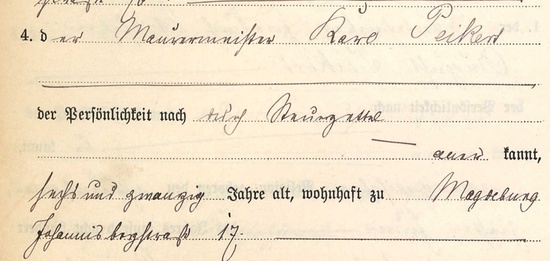 4. der Maurermeister Karl Peikert
der Persönlichkeit nach durch Steuerzettel
aner kannt,
sechs und zwanzig Jahre alt, wohnhaft zu Magdeburg
Johannisbergstraße 17.